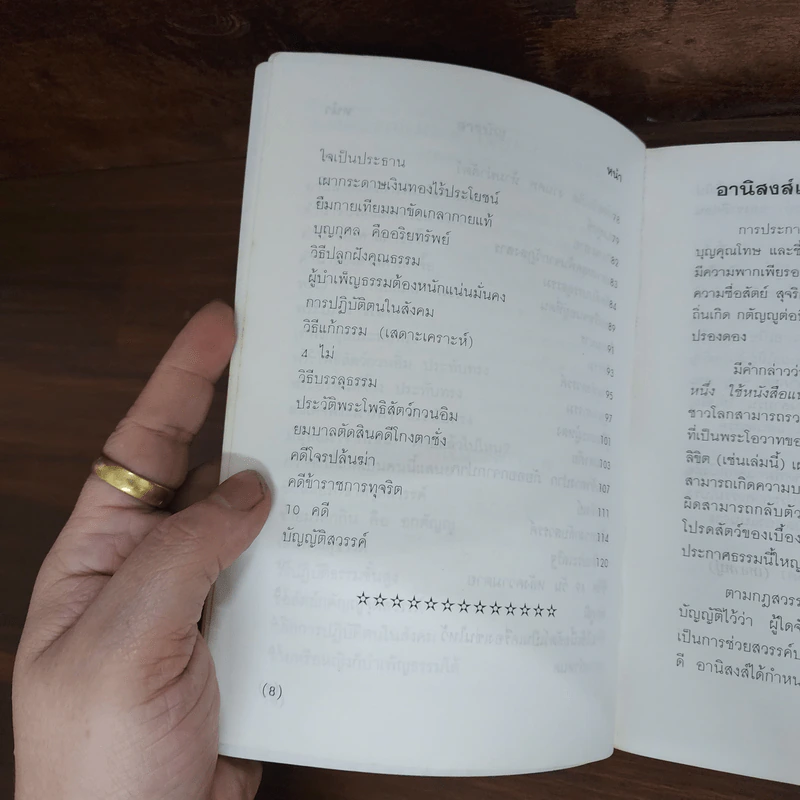 หน้า
ใจเป็นประธาน
เผากระดาษเงินทองไร้ประโยชน์
ยืมกายเทียมมาขัดเกลากายแท้ 82
บุญกุศล คืออริยทรัพย์ 83
วิธีปลูกฝังคุณธรรม 86
ผู้บำเพ็ญธรรมต้องหนักแน่นมั่นคง 89
การปฏิบัติตนในสังคม 91
วิธีแก้กรรม (เสดาะเคราะห์) 93
4 ไม่ 95
วิธีบรรลุธรรม 97
ประวัติพระโพธิสัตว์กวนอิม 101
ยมบาลตัดสินคดีโกงตาชั่ง 103
คดีโจรปล้นฆ่า 107
คดีข้าราชการทุจริต 111
10 คดี 114
บัญญัติสวรรค์ 120
(8)
อานิสงส์
การประกา
บุญคุณโทษ และชี้
มีความพากเพียรอ
ความซื่อสัตย์ สุจริ
ถิ่นเกิด กตัญญูต่อ
ปรองดอง
มีคำกล่าวว่
หนึ่ง ใช้หนังสือแ
ชาวโลกสามารถรว
ที่เป็นพระโอวาทขอ
ลิขิต (เช่นเล่มนี้)
สามารถเกิดความบ
ผิดสามารถกลับตัว
โปรดสัตว์ของเบื้อง
ประกาศธรรมนี้ใหญ
ตามกฎสวรร
บัญญัติไว้ว่า ผู้ใดจ
เป็นการช่วยสวรรค์
ดี อานิสงส์ได้กำห